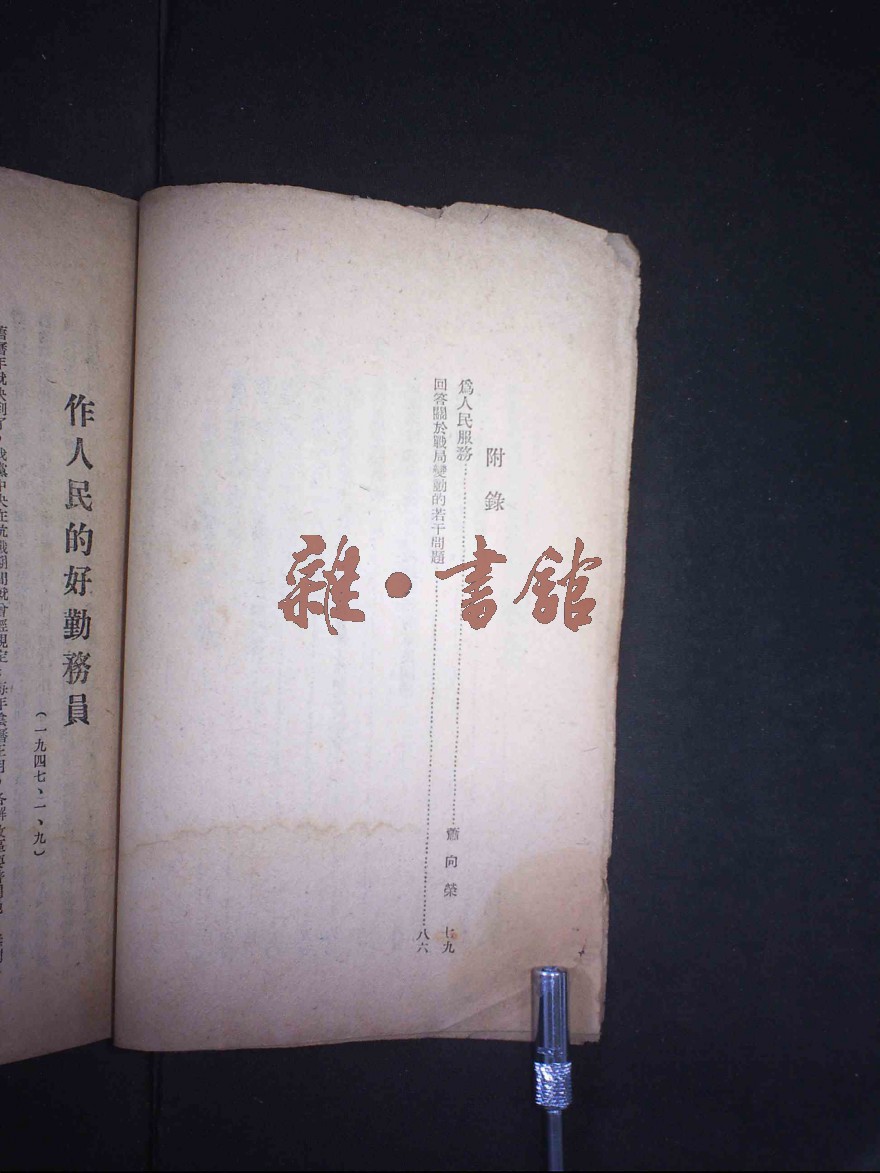 附錄
爲人民服務……蕭向榮 七九
回答關於戰局變動的若干問題……八六
作人民的好勤務員
(一九四七、一、九)
雜·書館